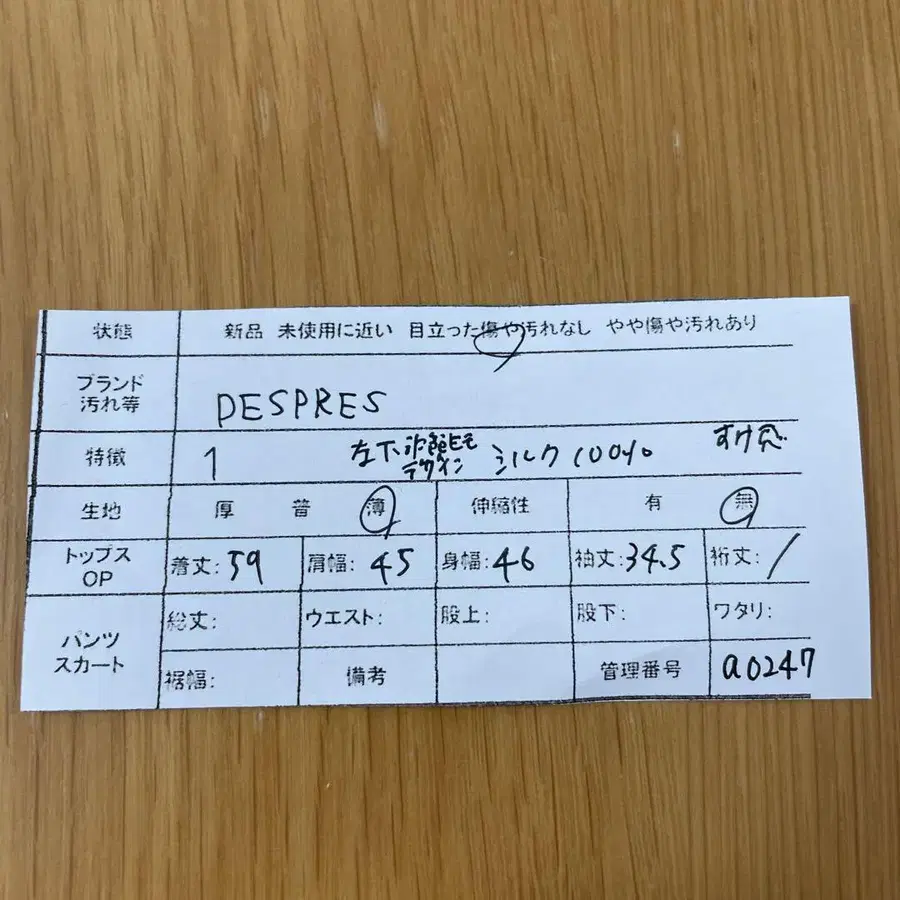 状態 新品 未使用に近い 目立った傷や汚れなし やや傷や汚れあり
ブランド
汚れ等 DESPRES
特徴 1 左下 シルク100% すけ感
デザイン
生地 厚 普 薄 伸縮性 有 無
トップス
OP 着丈:59 肩幅:45 身幅:46 袖丈:34.5 裄丈:/
パンツ
スカート 総丈: ウエスト: 股上: 股下: ワタリ:
裾幅: 備考 管理番号 a0247